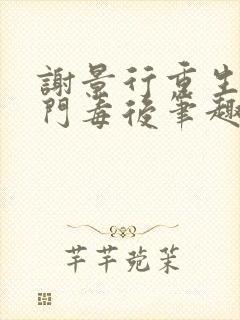 謝景行重生
門毒後筆趣
芊芊菀茱